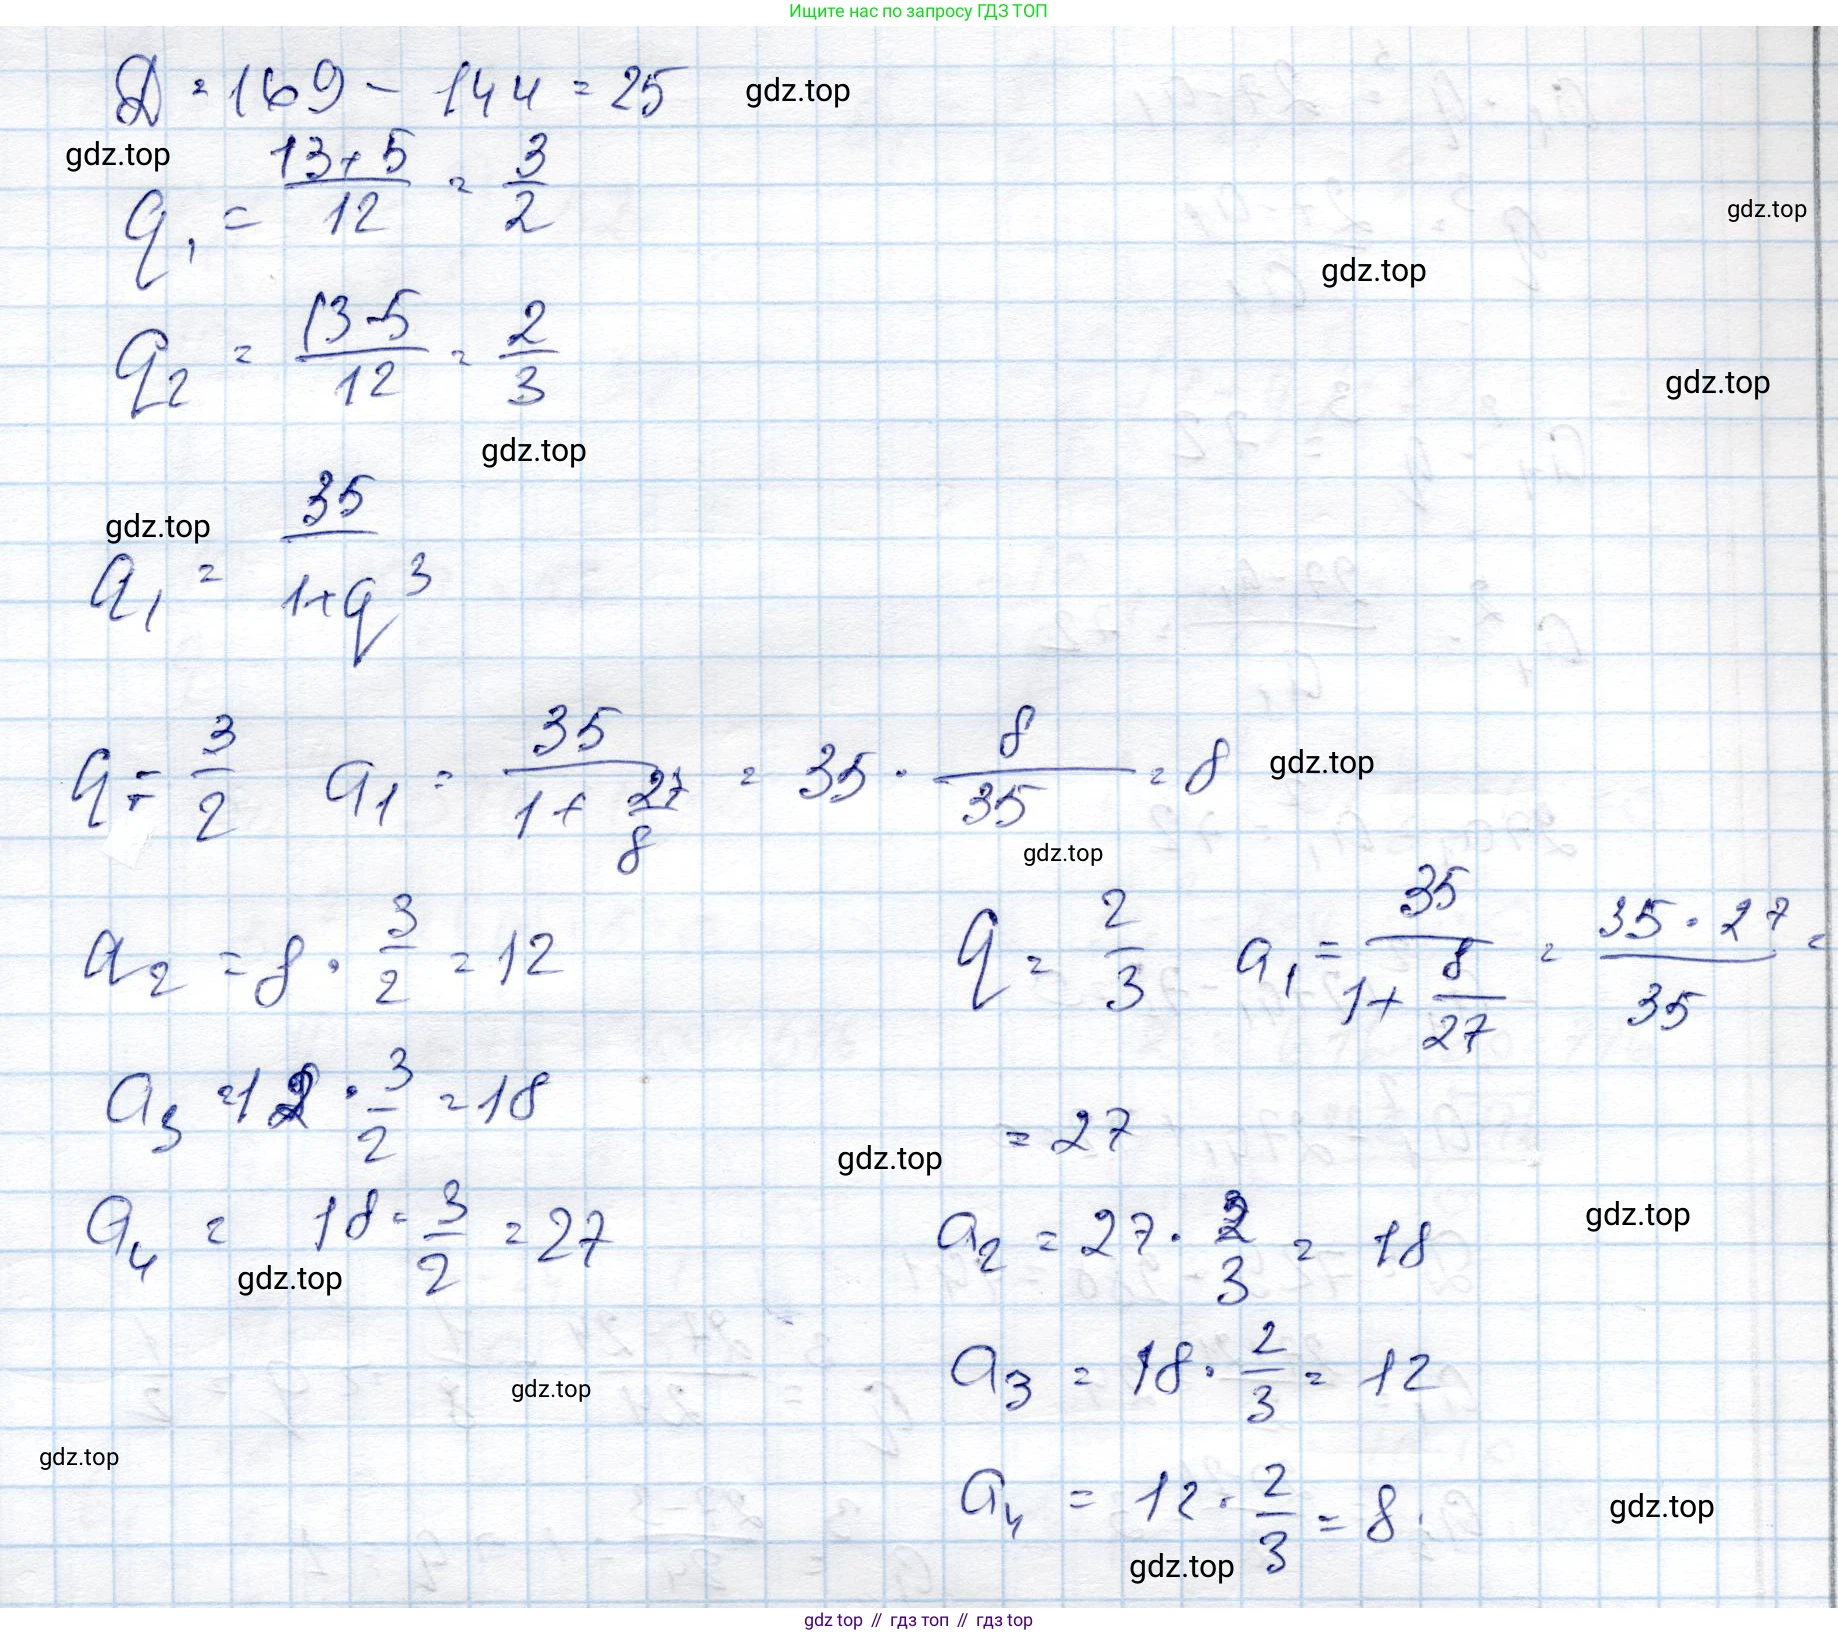 Ищите нас по запросу ГДЗ ТОП
D = 169 - 144 = 25 gdz.top
gdz.top
q₁ = (13+5)/12 = 3/2
gdz.top
gdz.top
q₂ = (13-5)/12 = 2/3
gdz.top
gdz.top
gdz.top
a₁ = 35/(1+q³)
q = 3/2 a₁ = 35/(1 + 27/8) = 35 · 8/35 = 8 gdz.top
gdz.top
a₂ = 8 · 3/2 = 12
a₃ = 12 · 3/2 = 18
a₄ = 18 · 3/2 = 27
gdz.top
q = 2/3 a₁ = 35/(1 + 8/27) = (35 · 27)/35 =
= 27
gdz.top
a₂ = 27 · 2/3 = 18
gdz.top
a₃ = 18 · 2/3 = 12
gdz.top
gdz.top
a₄ = 12 · 2/3 = 8
gdz.top
gdz.top
gdz top // гдз топ // gdz top